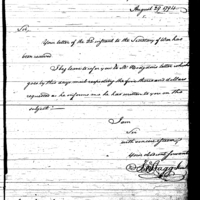 August 29 1794
Sir,
Your letter of the 23 instant to the Secretary of War has
been received
I beg leave to refer you to Mr. letter which
goes by this day's mail respecting the five thousand dollars
requested as he informs me he has written to you on this
subject
I am
Sir
with
Your obedient servant
Stagg